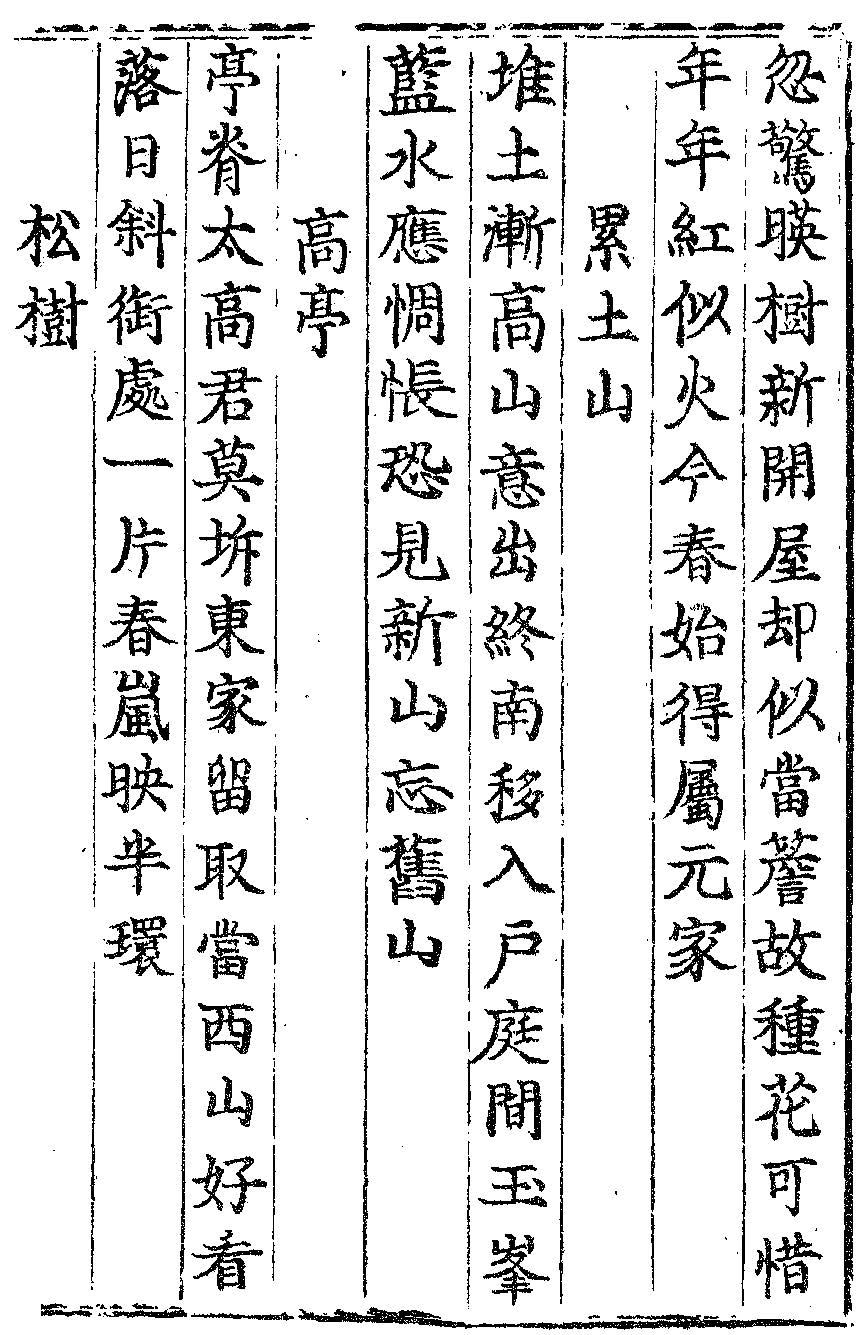 忽驚暎樹新開屋却似當簷故種花可惜
年年紅似火今春始得屬元家
累土山
堆土漸高山意出終南移入戶庭間玉峯
藍水應惆悵恐見新山忘舊山
高亭
亭脊太高君莫拆東家留取當西山好看
落日斜銜處一片春嵐映半環
松樹